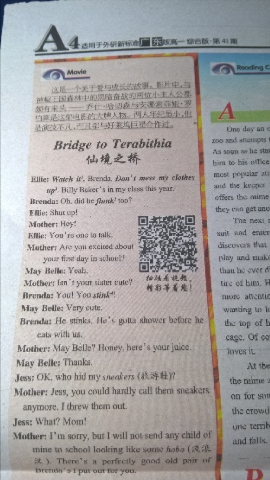 A4 适用于外研新标准广东版高一·综合版·第41期
Movie
这是一个关于爱与成长的故事。影片中,与
Bridge to Terabithia
仙境之桥
Ellie: Watch it, Brenda. Don't mess my clothes
up! Billy Baker's in my class this year.
Brenda: Oh, did he flunk too?
Ellie: Shut up!
Mother: Hey!
Ellie: You're one to talk.
Mother: Are you excited about
your first day in school?
May Belle: Yeah.
Mother: Isn't your sister cute?
Brenda: You! You stink!
May Belle: Very cute.
Brenda: He stinks. He's gotta shower before he
eats with us.
Mother: May Belle? Honey, here's your juice.
May Belle: Thanks.
Jess: OK, who hid my sneakers (旅游鞋)?
Mother: Jess, you could hardly call them sneakers
anymore. I threw them out.
Jess: What? Mom!
Mother: I'm sorry, but I will not send any child of
mine to school looking like some hobo (流浪
汉). There's a perfectly good old pair of
Brenda's I put out for you.
扫描看视频,
精彩等着您!
Reading C
A
One day an
zoo and attempts t
As soon as he star
him to his office
most popular att
and the keeper
offers the mime
they can get ano
The next
suit and enter
discovers that
play and make
than he ever
tire of him. H
more attenti
wanting to l
the top of h
cage. Of co
loves it.
At the
the mime
on for som
the crowd
one terrib
and falls.